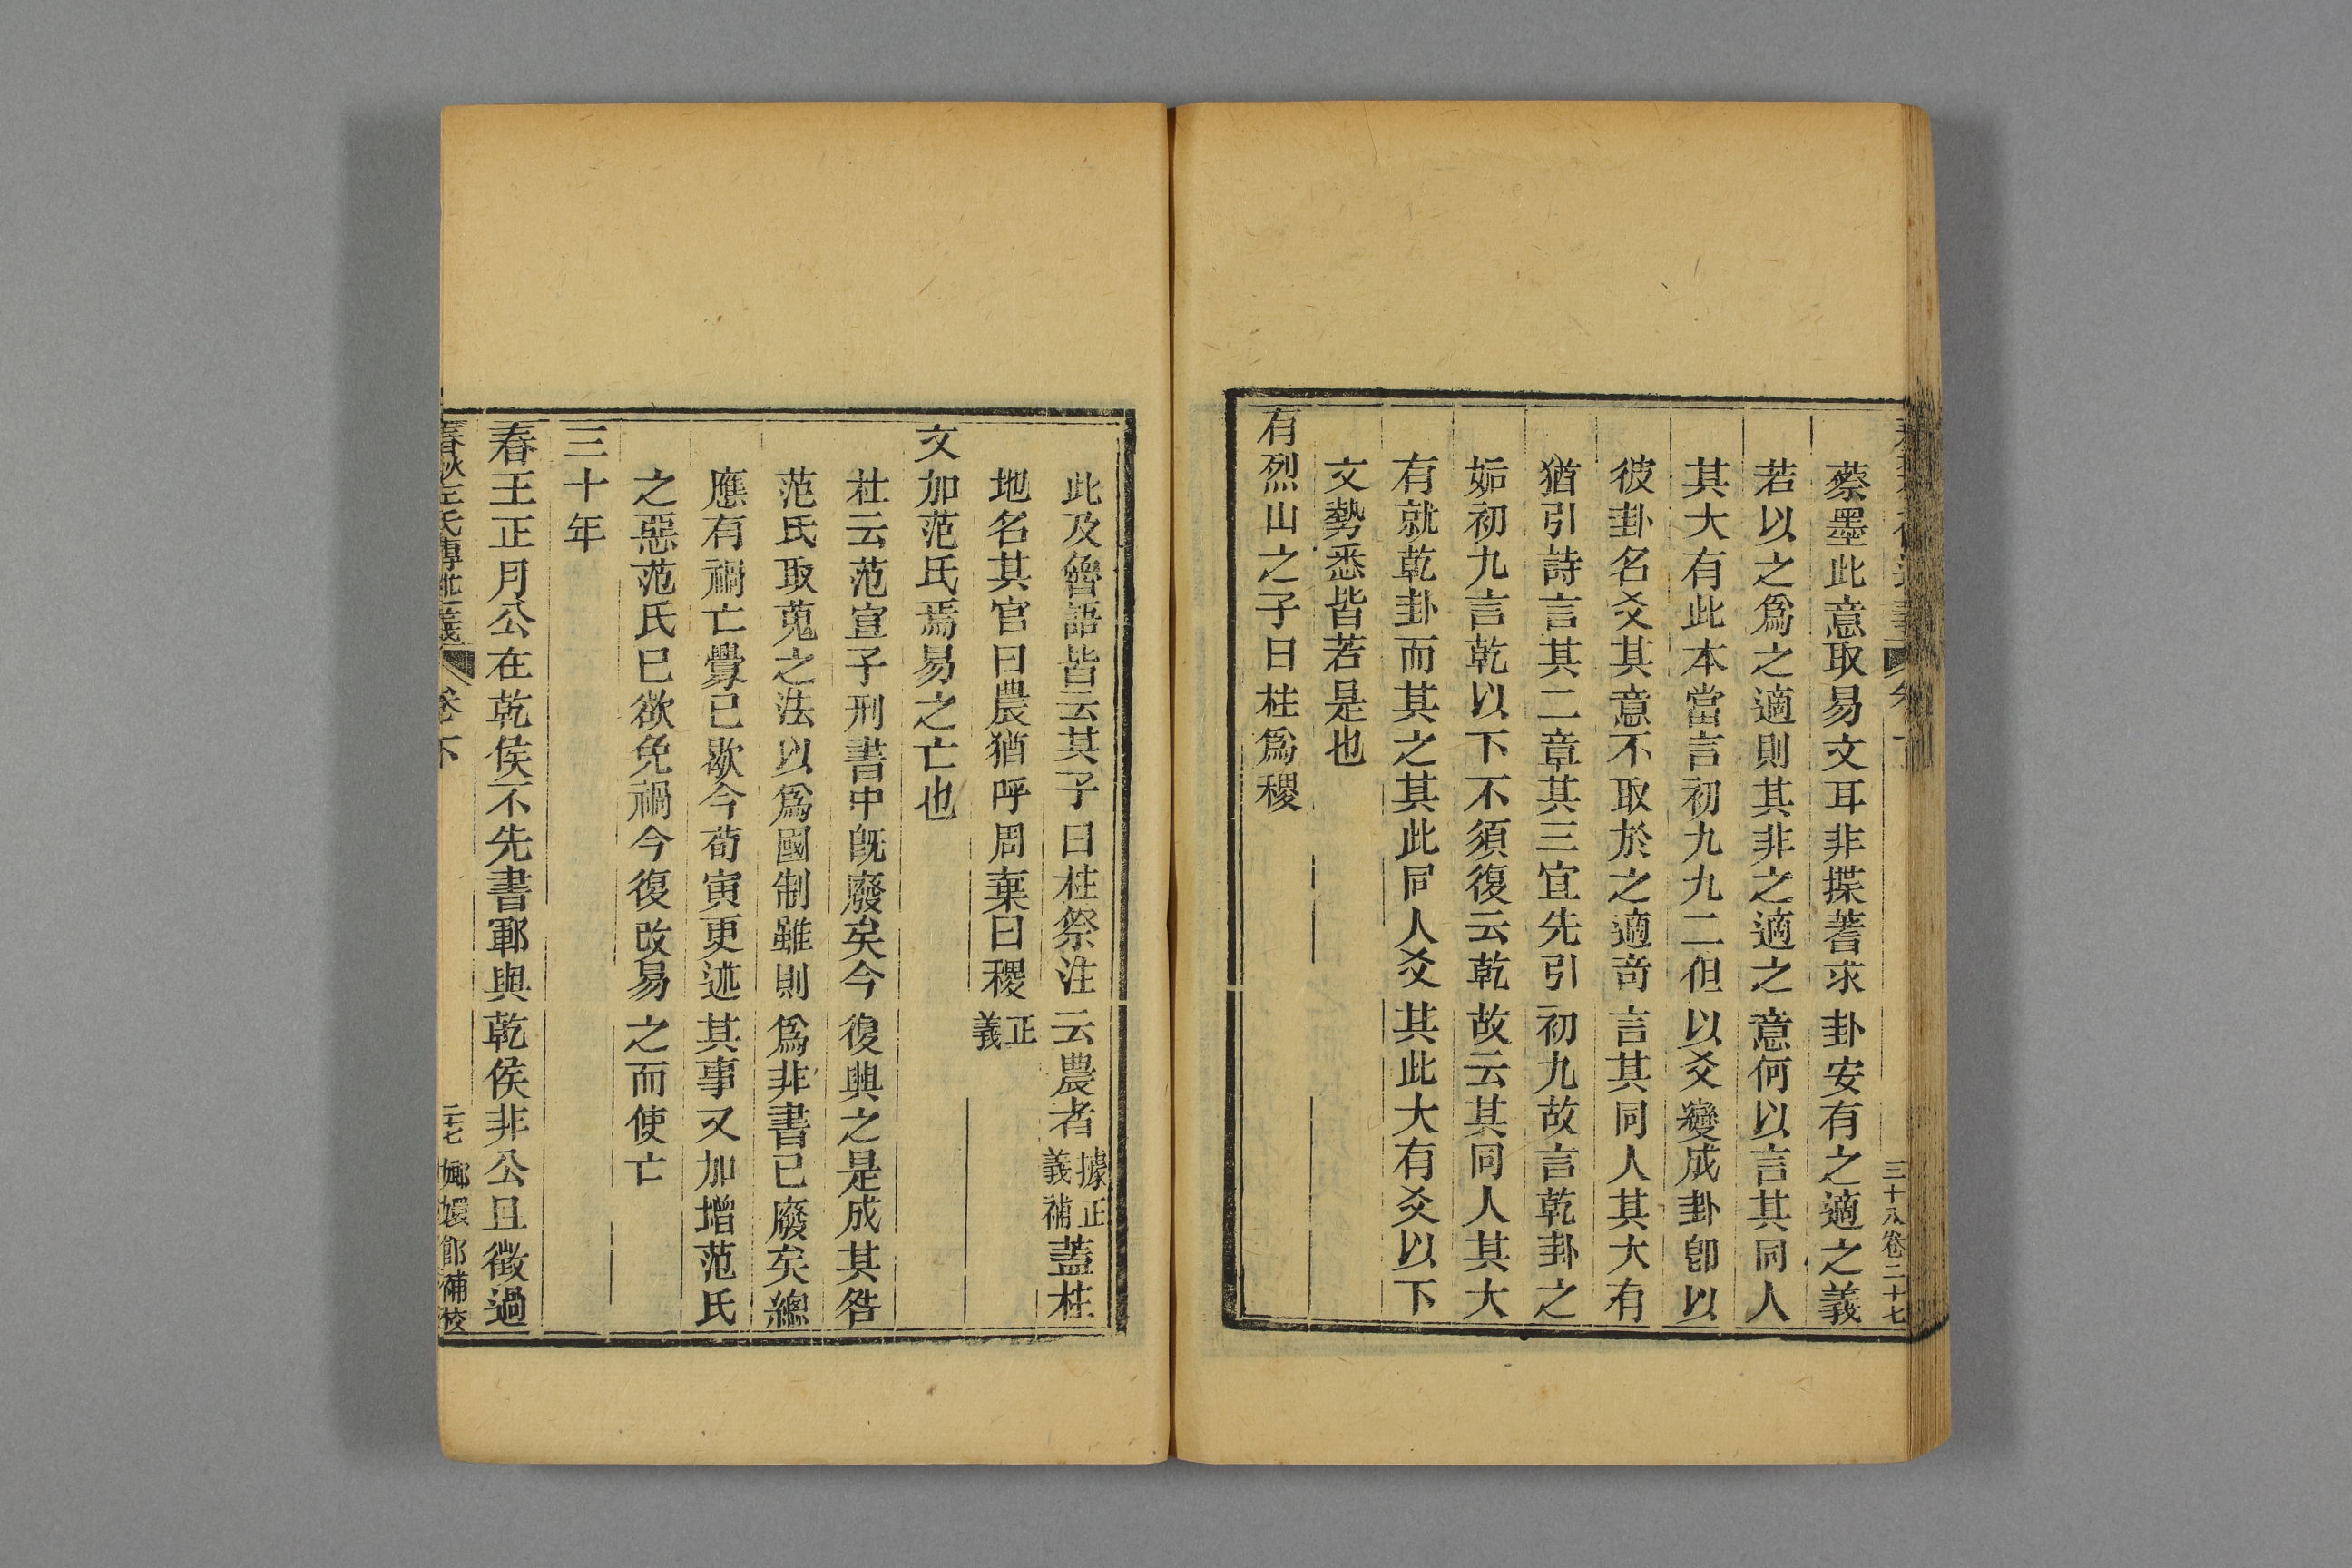 三十八卷二十七
蔡墨此意取易文耳非揲蓍求卦安有之適之義
若以之爲之適則其非之適之意何以言其同人
其大有此本當言初九九二但以爻變成卦卽以
彼卦名爻其意不取於之適竒言其同人其大有
猶引詩言其二章其三宜先引初九故言乾卦之
姤初九言乾以下不須復云乾故云其同人其大
有就乾卦而其之其此同人爻其此大有爻以下
文勢悉皆若是也
有烈山之子曰柱爲稷
此及魯語皆云其子曰柱祭注云農者據正義補蓋柱
地名其官曰農猶呼周棄曰稷正義
又加范氏焉易之亡也
杜云范宣子刑書中旣廢矣今復興之是成其咎
范氏取蒐之法以爲國制雖則爲非書已廢矣縱
應有禍亡釁已歇今荀寅更述其事又加增范氏
之惡范氏已欲免禍今復改易之而使亡
三十年
春王正月公在乾侯不先書鄆與乾侯非公且徵過
春秋左氏傳述義 卷下 二七 嫏嬛館補校